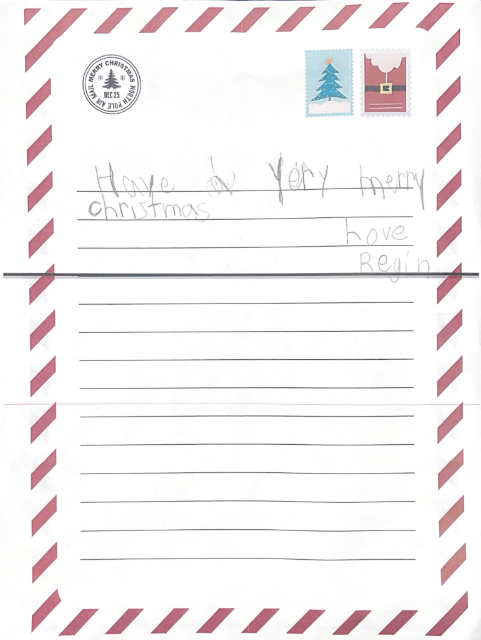 MERRY CHRISTMAS
DEC 25
NORTH POLE AIR MAIL
Have a Very merry
christmas
Love
Regin